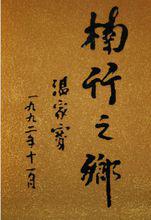 楠竹之鄉
温家寶
一九九二年十一月